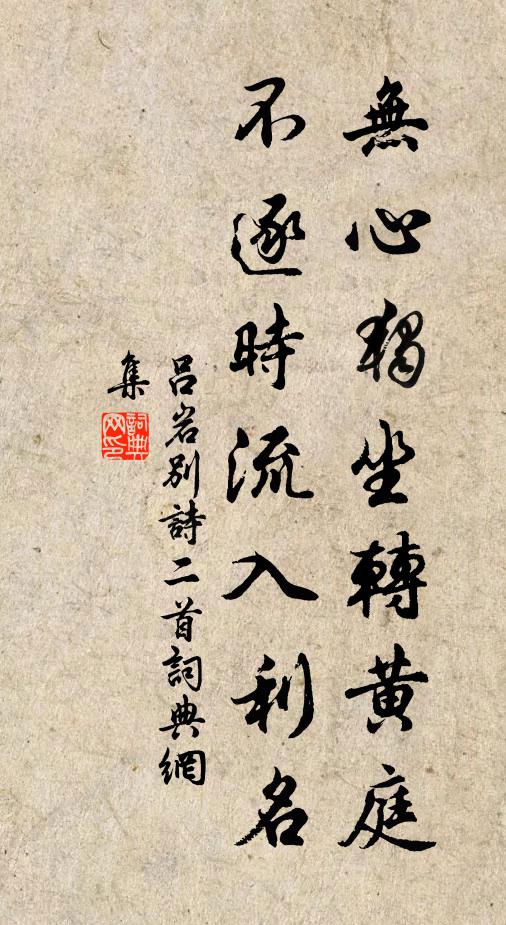 無心獨坐轉黄庭
不逐時流入利名
呂岩別詩二首詞典網
集
詞典网印